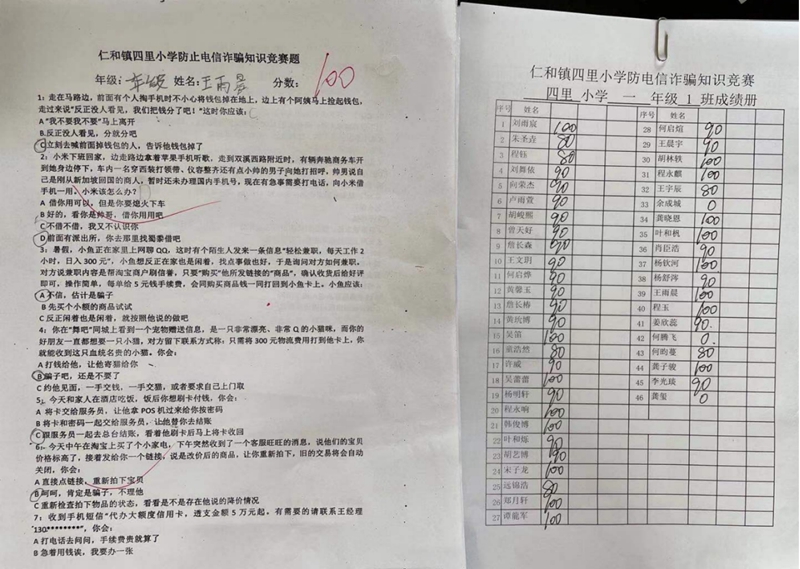 仁和镇四里小学防止电信诈骗知识竞赛题
年级: 一年级 姓名: 王雨晨 分数: 100
1: 走在马路边，前面有个人掏手机时不小心将钱包掉在地上，边上有个阿姨马上捡起钱包，
走过来说"反正没人看见，我们把钱分了吧！"这时你应该:
A "我不要我不要"马上离开
B.反正没人看见，分就分吧
C 立刻去喊前面掉钱包的人，告诉他钱包掉了
2: 小米下班回家，边走路边拿着苹果手机听歌，走到双溪西路附近时，有辆奔驰商务车开
到她身边停下，车内一名穿西装打领带、仪容整齐还有点小帅的男子向她打招呼，帅男说自
己是刚从新加坡回国的商人，暂时还未办理国内手机号，现在有急事需要打电话，向小米借
手机一用，小米该怎么办?
A 借你用可以，但是你要熄火下车
B 好的，看你是帅哥，借你用用吧
C 不借不借，我又不认识你
D 前面有派出所，你去那里找蜀黍借吧
3: 暑假，小鱼正在家里上网聊 QQ，这时有个陌生人发来一条信息"轻松兼职，每天工作 2
小时，日入 300 元"，小鱼想反正在家也是闲着，找点事做也好，于是询问对方如何兼职，
对方说兼职内容是帮淘宝商户刷信誉，只要"购买"他所发链接的"商品"，确认收货后给好评
即可，操作简单，每单给 5 元钱手续费，会同购买商品钱一同打回到小鱼卡上。小鱼应该:
A 不信，估计是骗子
B 先买个小额的商品试试
C 反正闲着也是闲着，就按照他说的做吧
4: 你在"舞吧"同城上看到一个宠物赠送信息，是一只非常漂亮、非常 Q 的小猫咪，而你的
好朋友一直都想要一只小猫，对方留下联系方式称: 只需将 300 元物流费用打到他卡上，你
就能收到这只血统名贵的小猫。你会:
A 打钱给他，让他寄猫给你
B 骗子吧，还是不要了
C 约他见面，一手交钱，一手交猫，或者要求自己上门取
5: 今天和家人在酒店吃饭，饭后你想刷卡付钱，你会:
A 将卡交给服务员，让他拿 POS 机过来给你按密码
B 将卡和密码一起交给服务员，让他替你去结账
C 跟服务员一起去总台结账，看着他刷卡后马上将卡收回
6: 今天中午在淘宝上买了个小家电，下午突然收到了一个客服旺旺的消息，说他们的宝贝
价格标高了，接着发给你一个链接，说是改价后的商品，让你重新拍下，旧的交易将会自动
关闭，你会:
A 直接点链接，重新拍下宝贝
B 呵呵，肯定是骗子，不理他
C 重新检查拍下物品的状态，看看是不是存在他说的降价情况
7: 收到手机短信"代办大额度信用卡，透支金额 5 万元起，有需要的请联系王经理
130********"，你会:
A 打电话去问问，手续费贵就算了
B 急着用钱诶，我要办一张
仁和镇四里小学防电信诈骗知识竞赛
四里 小学 一 年级 1 班成绩册
序号 姓名 序号 姓名
1 刘雨宸 100 28 何启煊 90
2 朱圣垚 80 29 王晨宇 90
3 程钰 80 30 胡林轶 100
4 刘舞依 90 31 程永麒 100
5 向荣杰 90 32 王宇辰 80
6 卢雨萱 90 33 余成城 0
7 胡峻熙 90 34 龚晓恩 100
8 曾天好 90 35 叶和枫 100
9 詹长森 90 36 肖臣浩 90
10 王文玥 90 37 杨钦河 100
11 何启烨 90 38 杨舒涔 90
12 黄馨玉 90 39 王雨晨 100
13 詹长椿 90 40 程玉 100
14 黄玖博 90 41 姜欣蕊 90
15 吴笛 100 42 何腾飞 0
16 童浩然 80 43 何昀蔓 80
17 许威 90 44 龚子骏 100
18 吴蕾蕾 100 45 李光琰 90
19 杨明轩 90 46 龚玺 0
20 程永响 100
21 韩俊博 100
22 叶和烁 90
23 胡艺博 90
24 宋子龙 100
25 远锦浩 80
26 郑月轩 100
27 谭龍军 100